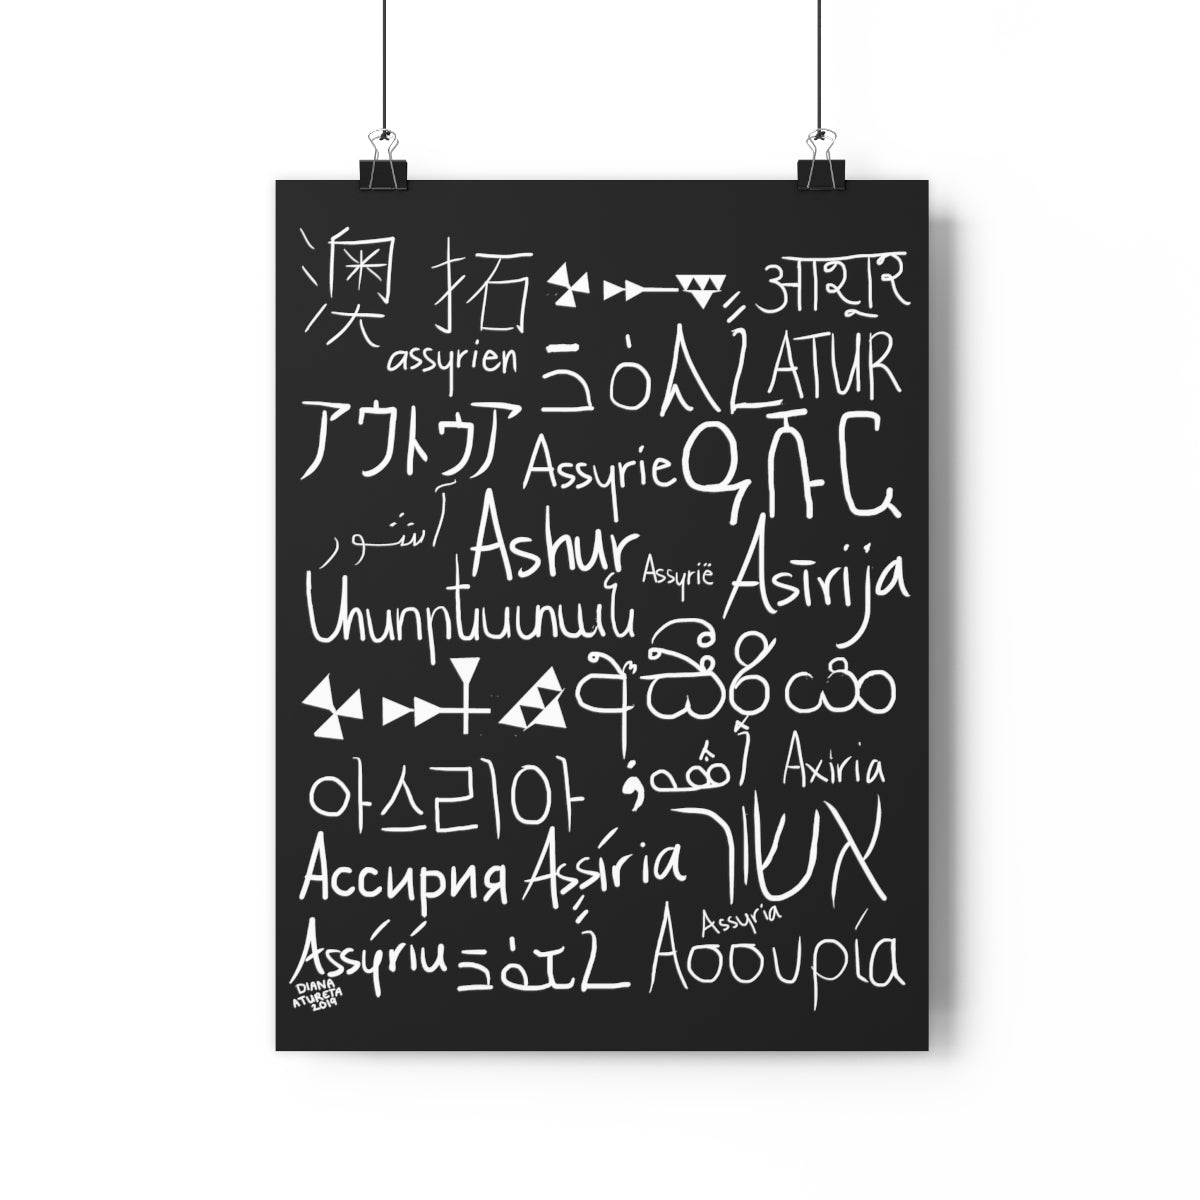 澳拓 आशूर
assyrien ܐܬܘܪ ATUR
アウトゥア Assyrie
آشور Ashur Assyrië Asīrija
아스리아 Axiria
Ассирия Assíria אשור
Assyria
Assýríu Ασσυρία
DIANA
ATURETA
2019